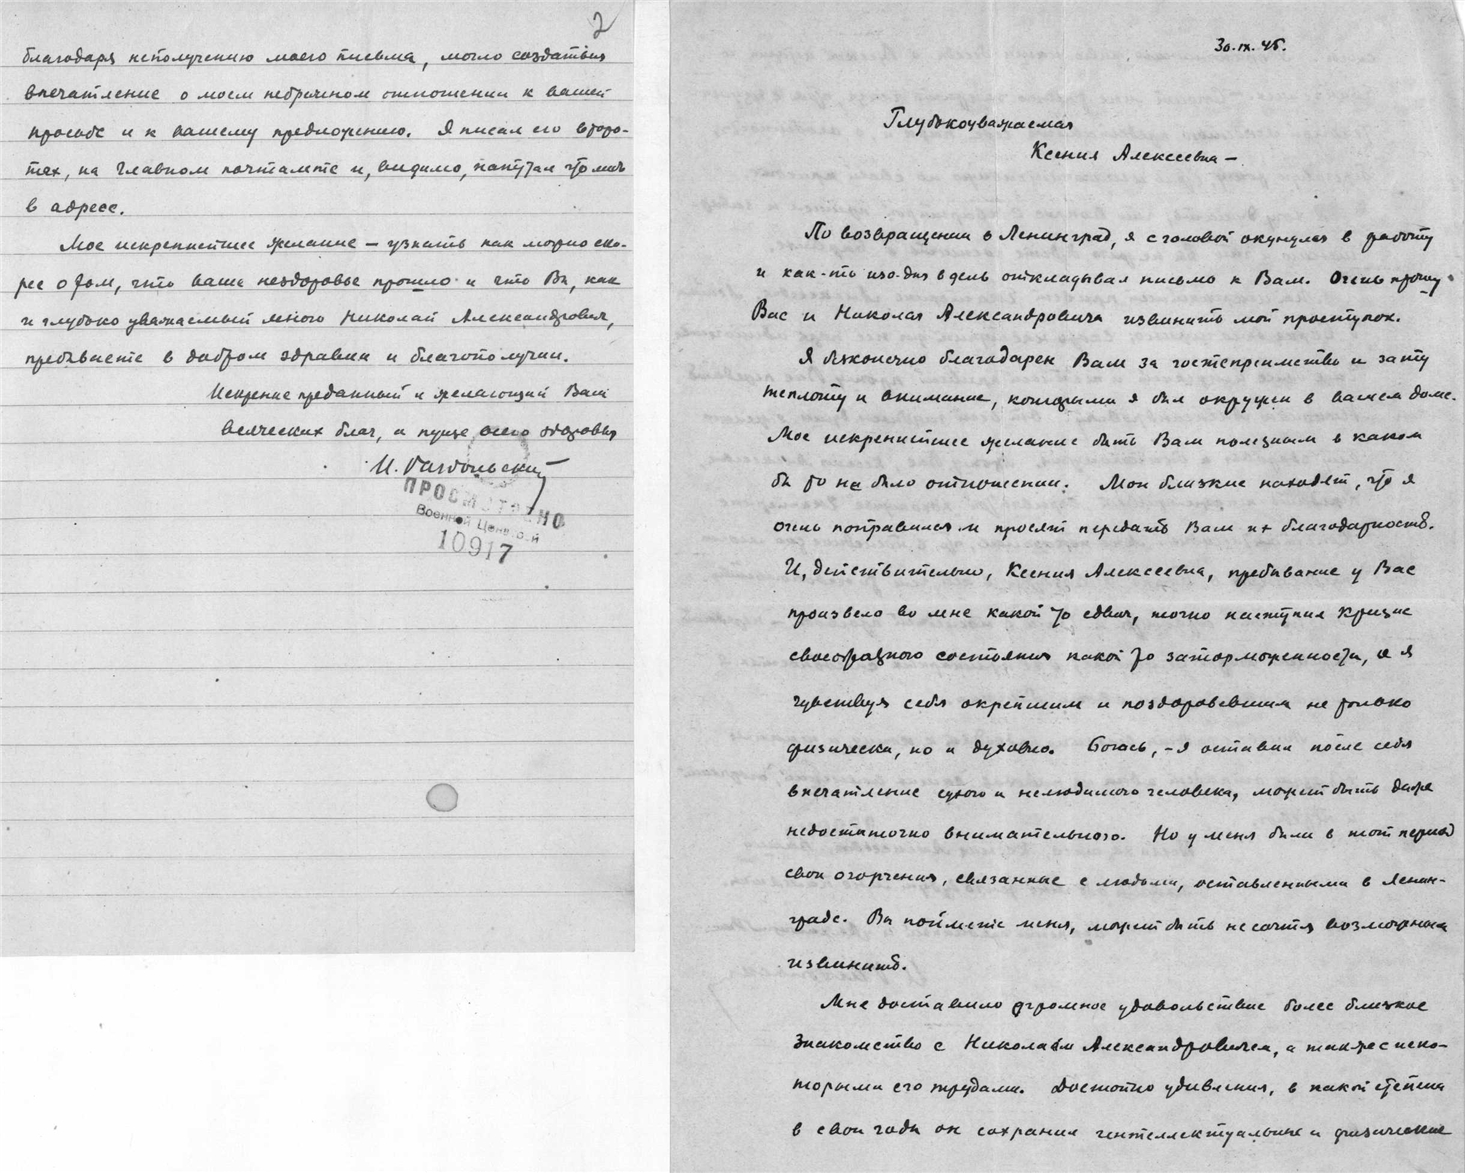 2
благодаря неполучению моего письма, могло создаться
впечатление о моем небрежном отношении к вашей
просьбе и к вашему предложению. Я писал его второ-
пях, на Главном почтамте и, видимо, напутал что либо
в адресе.
Мое искреннейшее желание — узнать как можно ско-
рее о том, что ваше нездоровье прошло и что Вы, как
и глубоко уважаемый мною Николай Александрович,
пребываете в добром здравии и благополучии.
Искренне преданный и желающий Вам
всяческих благ, и пуще всего здоровья
И. Раздольский
ПРОСМОТРЕНО
Военной Цензурой
10917
30.IX.45.
Глубокоуважаемая
Ксения Алексеевна —
По возвращении в Ленинград, я с головой окунулся в работу
и как-то изо-дня в день откладывал письмо к Вам. Очень прошу
Вас и Николая Александровича извинить мой проступок.
Я бесконечно благодарен Вам за гостеприимство и за ту
теплоту и внимание, которыми я был окружен в вашем доме.
Мое искреннейшее желание быть Вам полезным в каком
бы то не было отношении. Мои близкие находят, что я
очень поправился и просят передать Вам их благодарность.
И, действительно, Ксения Алексеевна, пребывание у Вас
произвело во мне какой то сдвиг, точно наступил кризис
своеобразного состояния какой то заторможенности, и я
чувствую себя окрепшим и поздоровевшим не только
физически, но и духовно. Боюсь, - я оставил после себя
впечатление сухого и нелюдимого человека, может быть даже
недостаточно внимательного. Но у меня были в тот период
свои огорчения, связанные с людьми, оставленными в Ленин-
граде. Вы поймете меня, может быть не сочтя возможным
извинить.
Мне доставило огромное удовольствие более близкое
знакомство с Николаем Александровичем, а также с неко-
торыми его трудами. Достойно удивления, в какой степени
в свои годы он сохранил интеллектуальные и физические